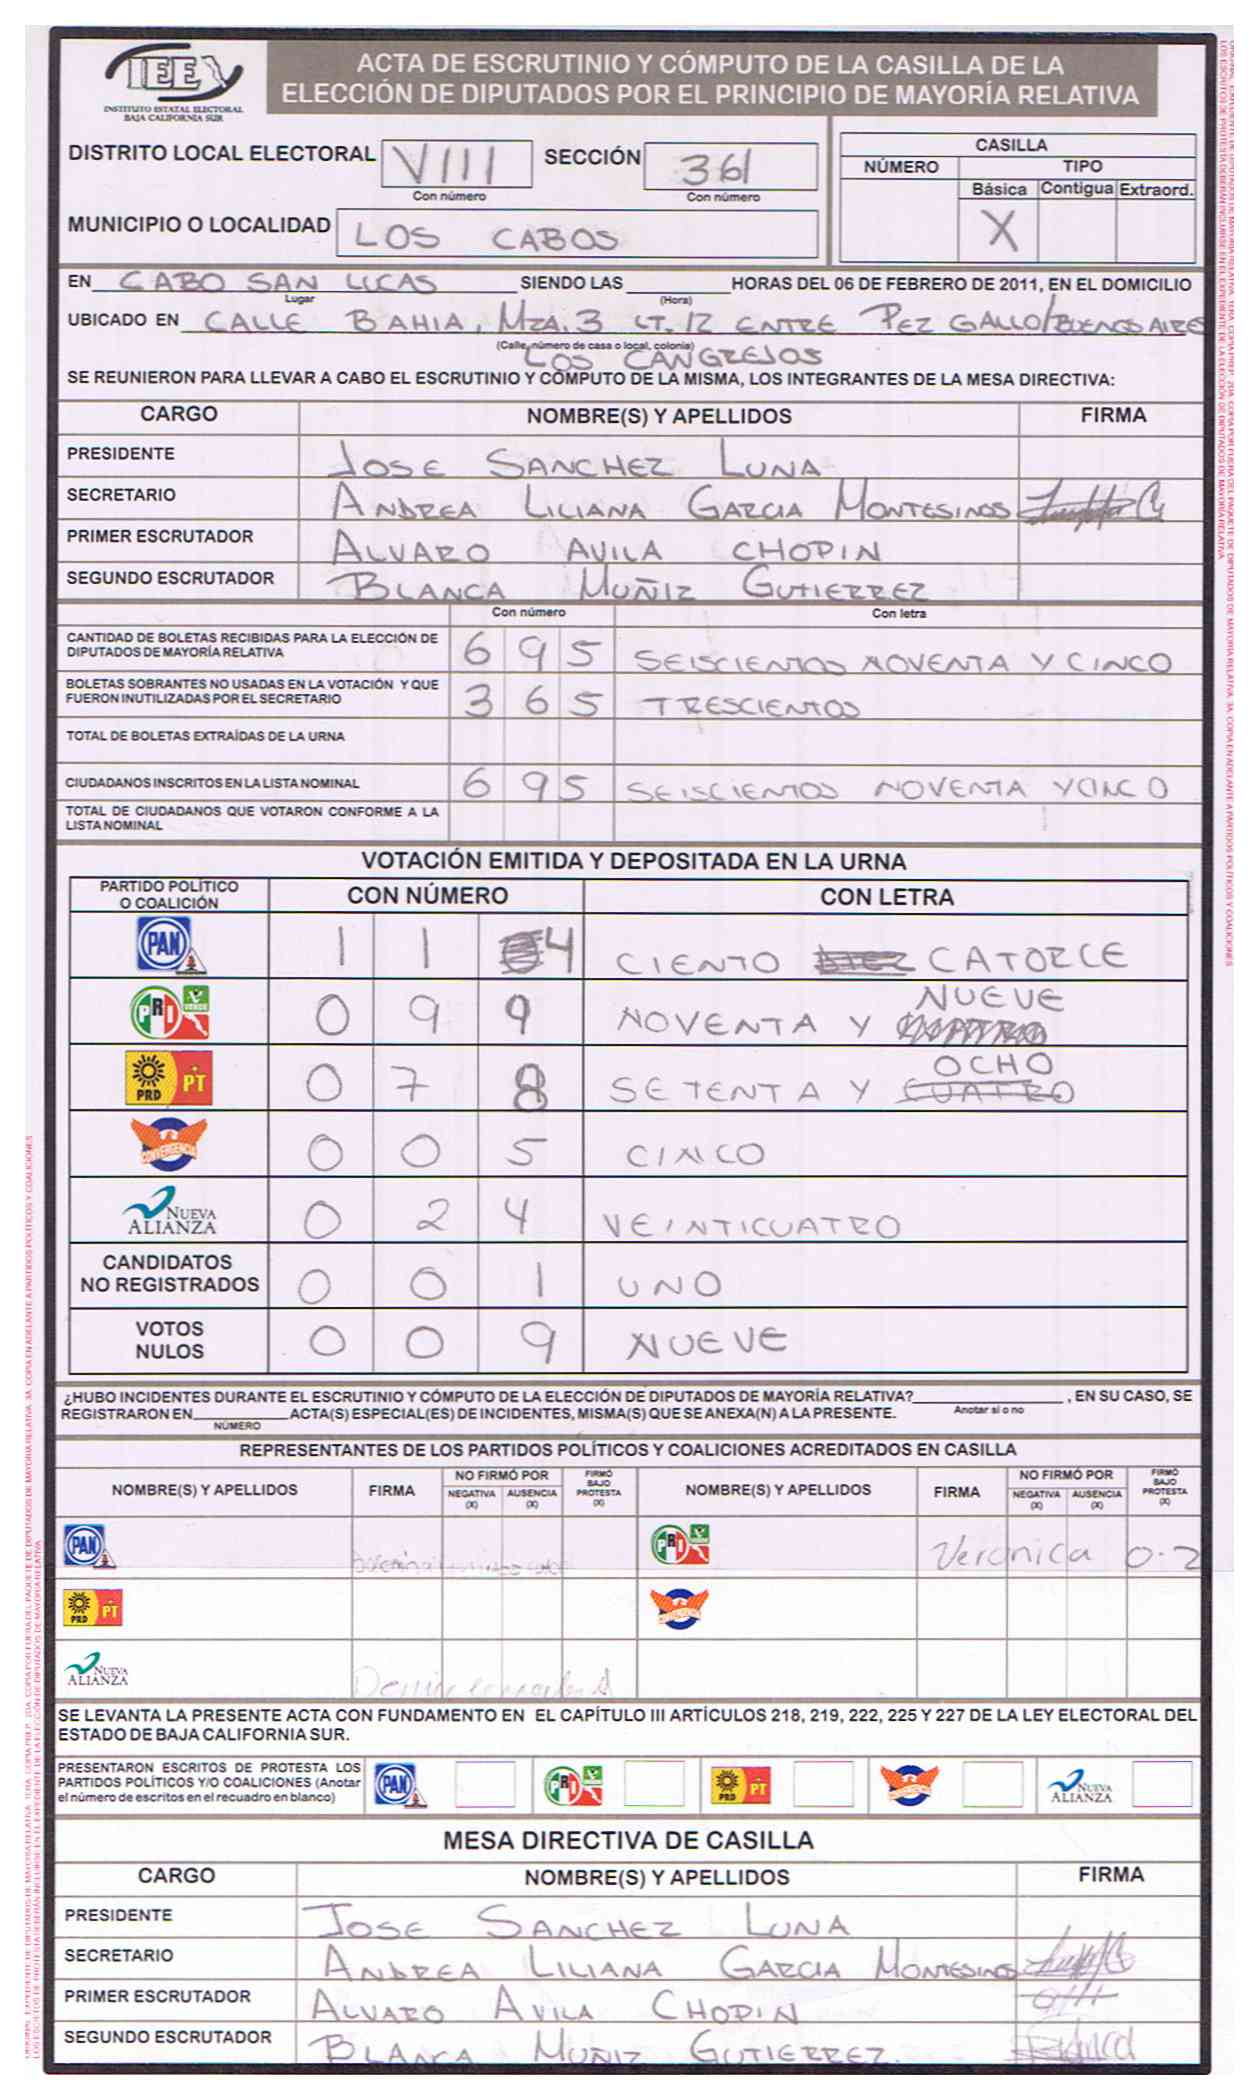 IEE
INSTITUTO ESTATAL ELECTORAL
BAJA CALIFORNIA SUR
ACTA DE ESCRUTINIO Y CÓMPUTO DE LA CASILLA DE LA
ELECCIÓN DE DIPUTADOS POR EL PRINCIPIO DE MAYORÍA RELATIVA
DISTRITO LOCAL ELECTORAL VIII SECCIÓN 361
Con número Con número
MUNICIPIO O LOCALIDAD LOS CABOS
CASILLA
NÚMERO TIPO
Básica Contigua Extraord.
X
EN CABO SAN LUCAS SIENDO LAS HORAS DEL 06 DE FEBRERO DE 2011, EN EL DOMICILIO
Lugar (Hora)
UBICADO EN CALLE BAHIA, MZA. 3 LT. 12 ENTRE PEZ GALLO/BUENOS AIRES
(Calle, número de casa o local, colonia)
LOS CANGREJOS
SE REUNIERON PARA LLEVAR A CABO EL ESCRUTINIO Y CÓMPUTO DE LA MISMA, LOS INTEGRANTES DE LA MESA DIRECTIVA:
CARGO NOMBRE(S) Y APELLIDOS FIRMA
PRESIDENTE JOSE SANCHEZ LUNA
SECRETARIO ANDREA LILIANA GARCIA MONTESINOS
PRIMER ESCRUTADOR ALVARO AVILA CHOPIN
SEGUNDO ESCRUTADOR BLANCA MUÑIZ GUTIERREZ
Con número Con letra
CANTIDAD DE BOLETAS RECIBIDAS PARA LA ELECCIÓN DE
DIPUTADOS DE MAYORÍA RELATIVA 6 9 5 SEISCIENTOS NOVENTA Y CINCO
BOLETAS SOBRANTES NO USADAS EN LA VOTACIÓN Y QUE
FUERON INUTILIZADAS POR EL SECRETARIO 3 6 5 TRESCIENTOS
TOTAL DE BOLETAS EXTRAÍDAS DE LA URNA
CIUDADANOS INSCRITOS EN LA LISTA NOMINAL 6 9 5 SEISCIENTOS NOVENTA Y CINCO
TOTAL DE CIUDADANOS QUE VOTARON CONFORME A LA
LISTA NOMINAL
VOTACIÓN EMITIDA Y DEPOSITADA EN LA URNA
PARTIDO POLÍTICO
O COALICIÓN CON NÚMERO CON LETRA
PAN 1 1 4 CIENTO CATORCE
PRI VERDE 0 9 9 NOVENTA Y NUEVE
PRD PT 0 7 8 SETENTA Y CUATRO OCHO
CONVERGENCIA 0 0 5 CINCO
NUEVA ALIANZA 0 2 4 VEINTICUATRO
CANDIDATOS
NO REGISTRADOS 0 0 1 UNO
VOTOS
NULOS 0 0 9 NUEVE
¿HUBO INCIDENTES DURANTE EL ESCRUTINIO Y CÓMPUTO DE LA ELECCIÓN DE DIPUTADOS DE MAYORÍA RELATIVA? , EN SU CASO, SE
Anotar si o no
REGISTRARON EN ACTA(S) ESPECIAL(ES) DE INCIDENTES, MISMA(S) QUE SE ANEXA(N) A LA PRESENTE.
NÚMERO
REPRESENTANTES DE LOS PARTIDOS POLÍTICOS Y COALICIONES ACREDITADOS EN CASILLA
NOMBRE(S) Y APELLIDOS FIRMA NO FIRMÓ POR NEGATIVA (X) AUSENCIA (X) FIRMÓ BAJO PROTESTA (X) NOMBRE(S) Y APELLIDOS FIRMA NO FIRMÓ POR NEGATIVA (X) AUSENCIA (X) FIRMÓ BAJO PROTESTA (X)
PAN PRI VERDE Veronica O. Z
PRD PT CONVERGENCIA
NUEVA ALIANZA
SE LEVANTA LA PRESENTE ACTA CON FUNDAMENTO EN EL CAPÍTULO III ARTÍCULOS 218, 219, 222, 225 Y 227 DE LA LEY ELECTORAL DEL
ESTADO DE BAJA CALIFORNIA SUR.
PRESENTARON ESCRITOS DE PROTESTA LOS
PARTIDOS POLÍTICOS Y/O COALICIONES (Anotar
el número de escritos en el recuadro en blanco)
PAN PRI VERDE PRD PT CONVERGENCIA NUEVA ALIANZA
MESA DIRECTIVA DE CASILLA
CARGO NOMBRE(S) Y APELLIDOS FIRMA
PRESIDENTE JOSE SANCHEZ LUNA
SECRETARIO ANDREA LILIANA GARCIA MONTESINOS
PRIMER ESCRUTADOR ALVARO AVILA CHOPIN
SEGUNDO ESCRUTADOR BLANCA MUÑIZ GUTIERREZ